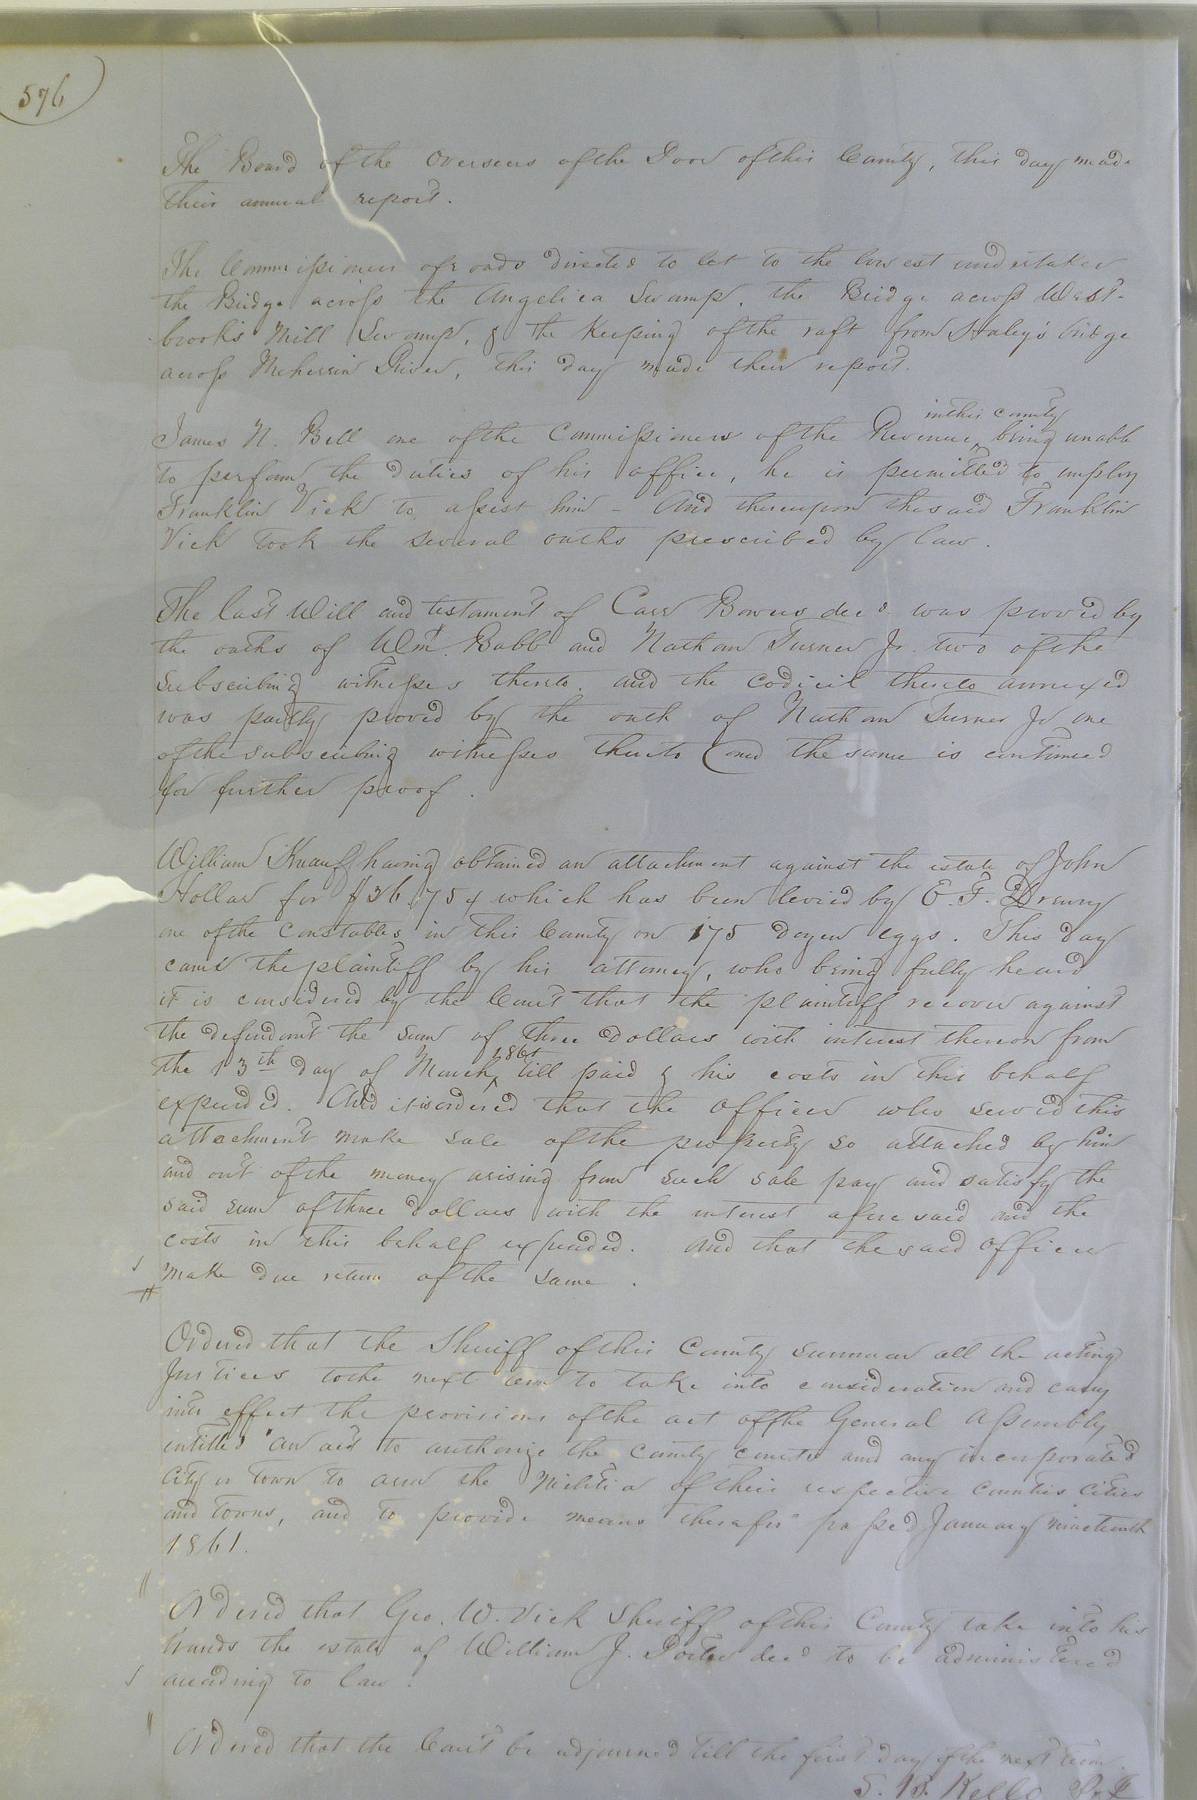 576
The Board of the Overseers of the Poor of this County, this day made
their annual report.
The Commissioners of roads directed to let to the lowest undertaker
the Bridge across the Angelica Swamp, the Bridge across West-
brook's Mill Swamp, & the Keeping of the raft from Haley's bridge
across Meherrin River, this day made their report.
in this county
James N. Bell one of the Commissioners of the Revenue ^ being unable
to perform the duties of his office, he is permitted to employ
Franklin Vick to assist him - And thereupon the said Franklin
Vick took the several oaths prescribed by law.
The last Will and testament of Carr Bowers decd. was proved by
the oaths of Wm. Babb and Nathan Turner Jr. two of the
subscribing witnesses thereto. and the codicil thereto annexed
was partly proved by the oath of Nathan Turner Jr one
of the subscribing witnesses thereto and the same is continued
for further proof.
William Knauff having obtained an attachment against the estate of John
Hollar for $36.75¢ which has been levied by E. F. Drewry
one of the Constables in this County on 175 dozen eggs. This day
came the plaintiff by his attorney, who being fully heard
it is considered by the Court that the plaintiff recover against
the defendant the sum of three dollars with interest thereon from
1861
the 13th day of March ^ till paid & his costs in this behalf
expended. And it is ordered that the officer who served this
attachment make sale of the property so attached by him
and out of the money arising from such sale pay and satisfy the
said sum of three dollars with the interest aforesaid and the
costs in this behalf expended. And that the said officer
make due return of the same.
Ordered that the Sheriff of this County summon all the acting
Justices to the next term to take into consideration and carry
into effect the provisions of the act of the General Assembly
intitled "an act to authorize the county courts and any incorporated
City or town to arm the Militia of their respective Counties Cities
and towns, and to provide means therefor" passed January nineteenth
1861.
Ordered that Geo. W. Vick Sheriff of this County take into his
hands the estate of William J. Porter decd to be administered
according to law.
Ordered that the Court be adjourned till the first day of the next term.
S. B. Kello